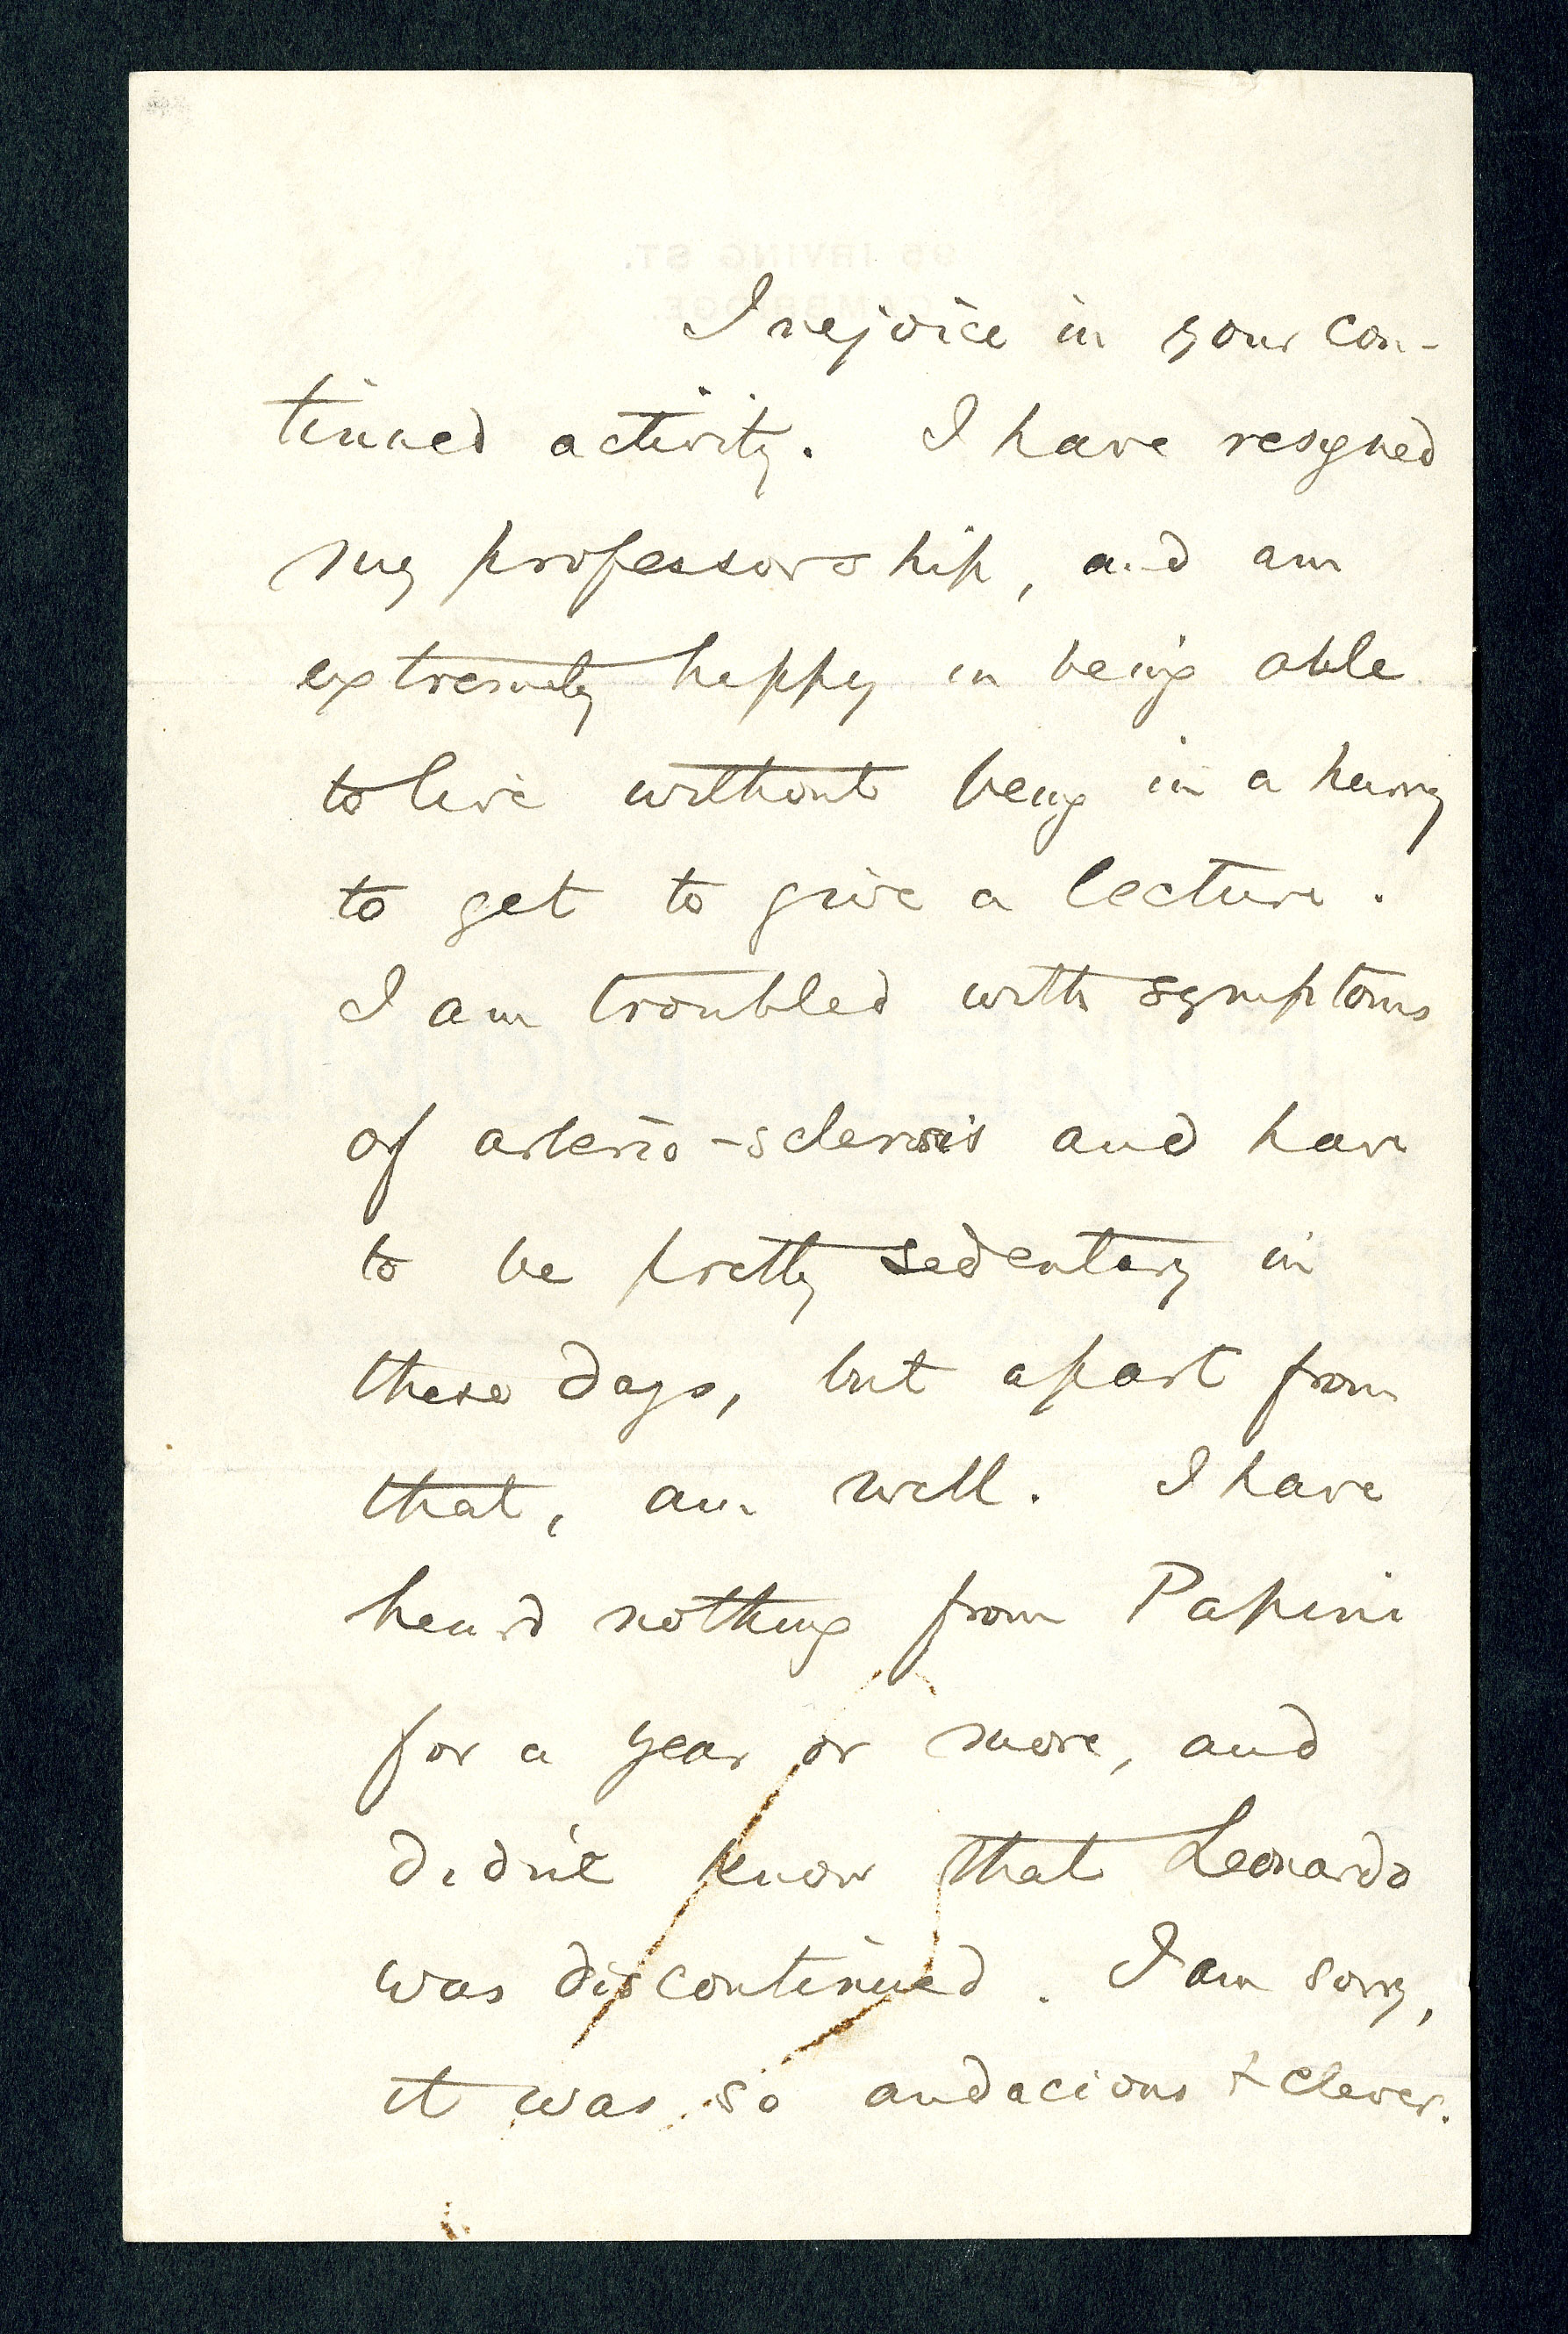 I rejoice in your con-
tinued activity. I have resigned
my professorship, and am
extremely happy in being able
to live without being in a hurry
to get to give a lecture.
I am troubled with symptoms
of arterio-sclerosis and have
to be pretty sedentary in
these days, but apart from
that, am well. I have
heard nothing from Papini
for a year or more, and
didn't know that Leonardo
was discontinued. I am sorry,
it was so audacious & clever.